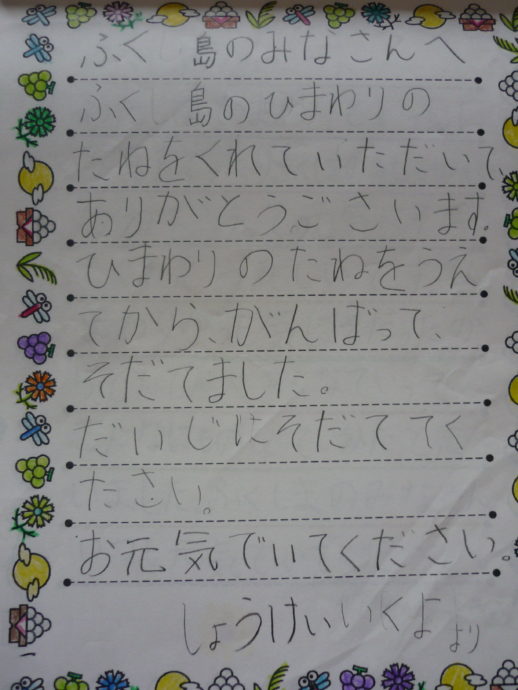 ふく島のみなさんへ
ふく島のひまわりの
たねをくれていただいて、
ありがとうごさいます。
ひまわりのたねをうえ
てから、がんばって、
そだてました。
だいじにそだててく
たさい。
お元気でいてください。
しょうけいいくよより